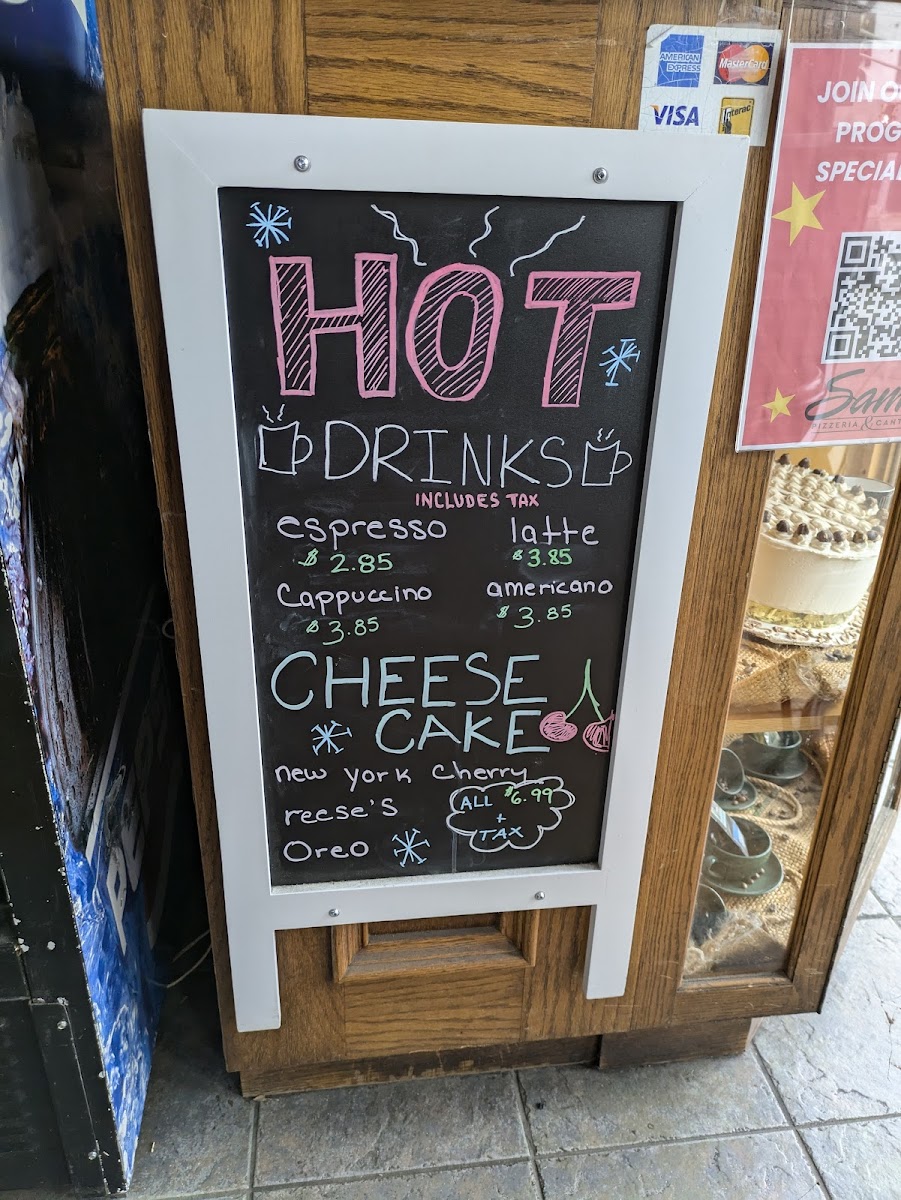 AMERICAN EXPRESS
MasterCard
VISA
Interac
JOIN
PROG
SPECIAL
HOT
DRINKS
INCLUDES TAX
espresso latte
$2.85 $3.85
Cappuccino americano
$3.85 $3.85
CHEESE
CAKE
new york Cherry
reese's
Oreo
ALL $6.99
+
TAX
Sam
PIZZERIA & CANT
PEPSI